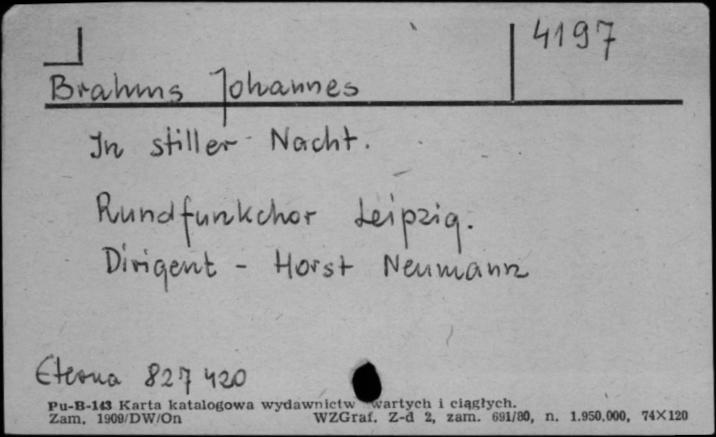 4197
Brahms Johannes
In stiller Nacht.
Rundfunkchor Leipzig.
Dirigent - Horst Neumann
Eterna 827 420
Pu-B-143 Karta katalogowa wydawnictw wartych i ciągłych.
Zam. 1909/DW/On WZGraf. Z-d 2, zam. 691/80, n. 1.950.000, 74X120